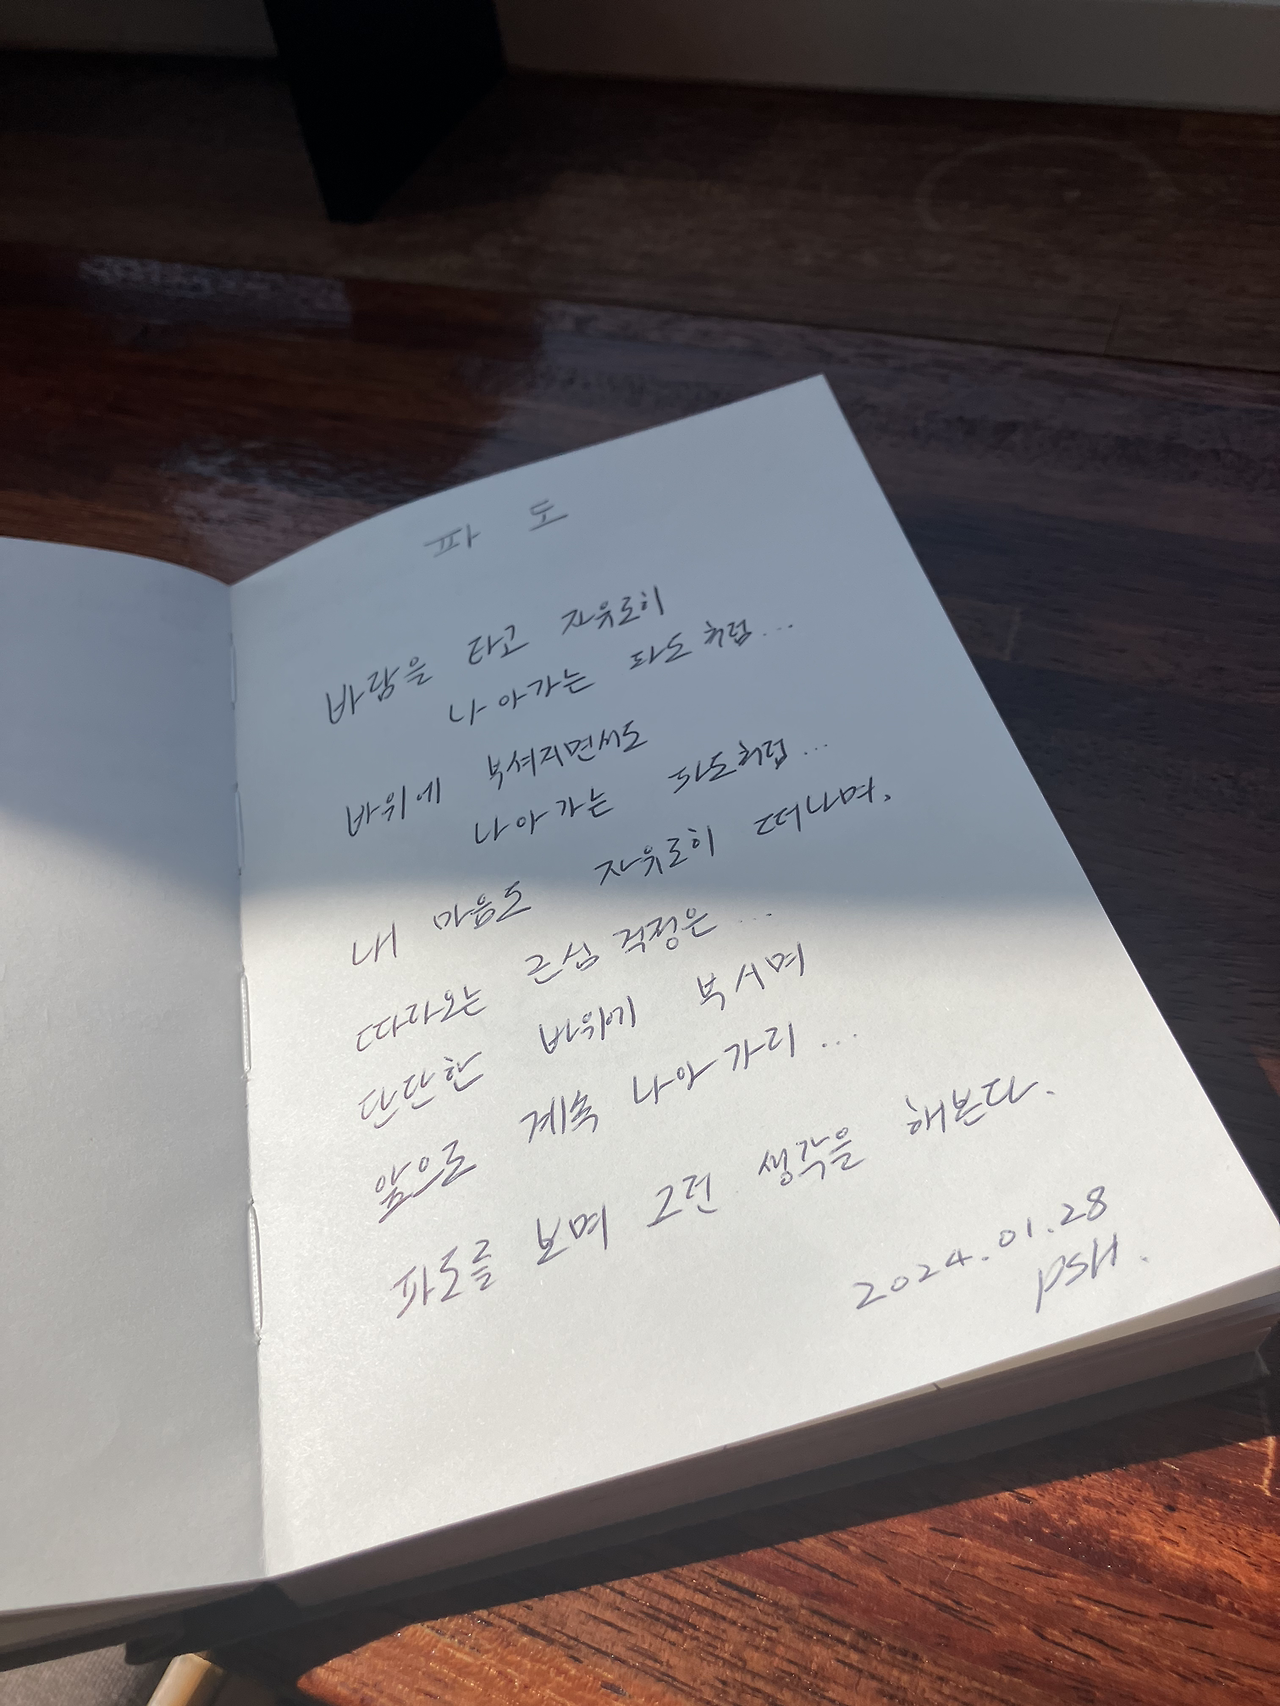 파 도
바람을 타고 자유로히
나아가는 파도처럼...
바위에 부셔지면서도
나아가는 파도처럼...
내 마음도 자유로히 떠나며,
따라오는 근심 걱정은...
단단한 바위에 부시며
앞으로 계속 나아가리...
파도를 보며 그런 생각을 해본다.
2024.01.28
PSH.